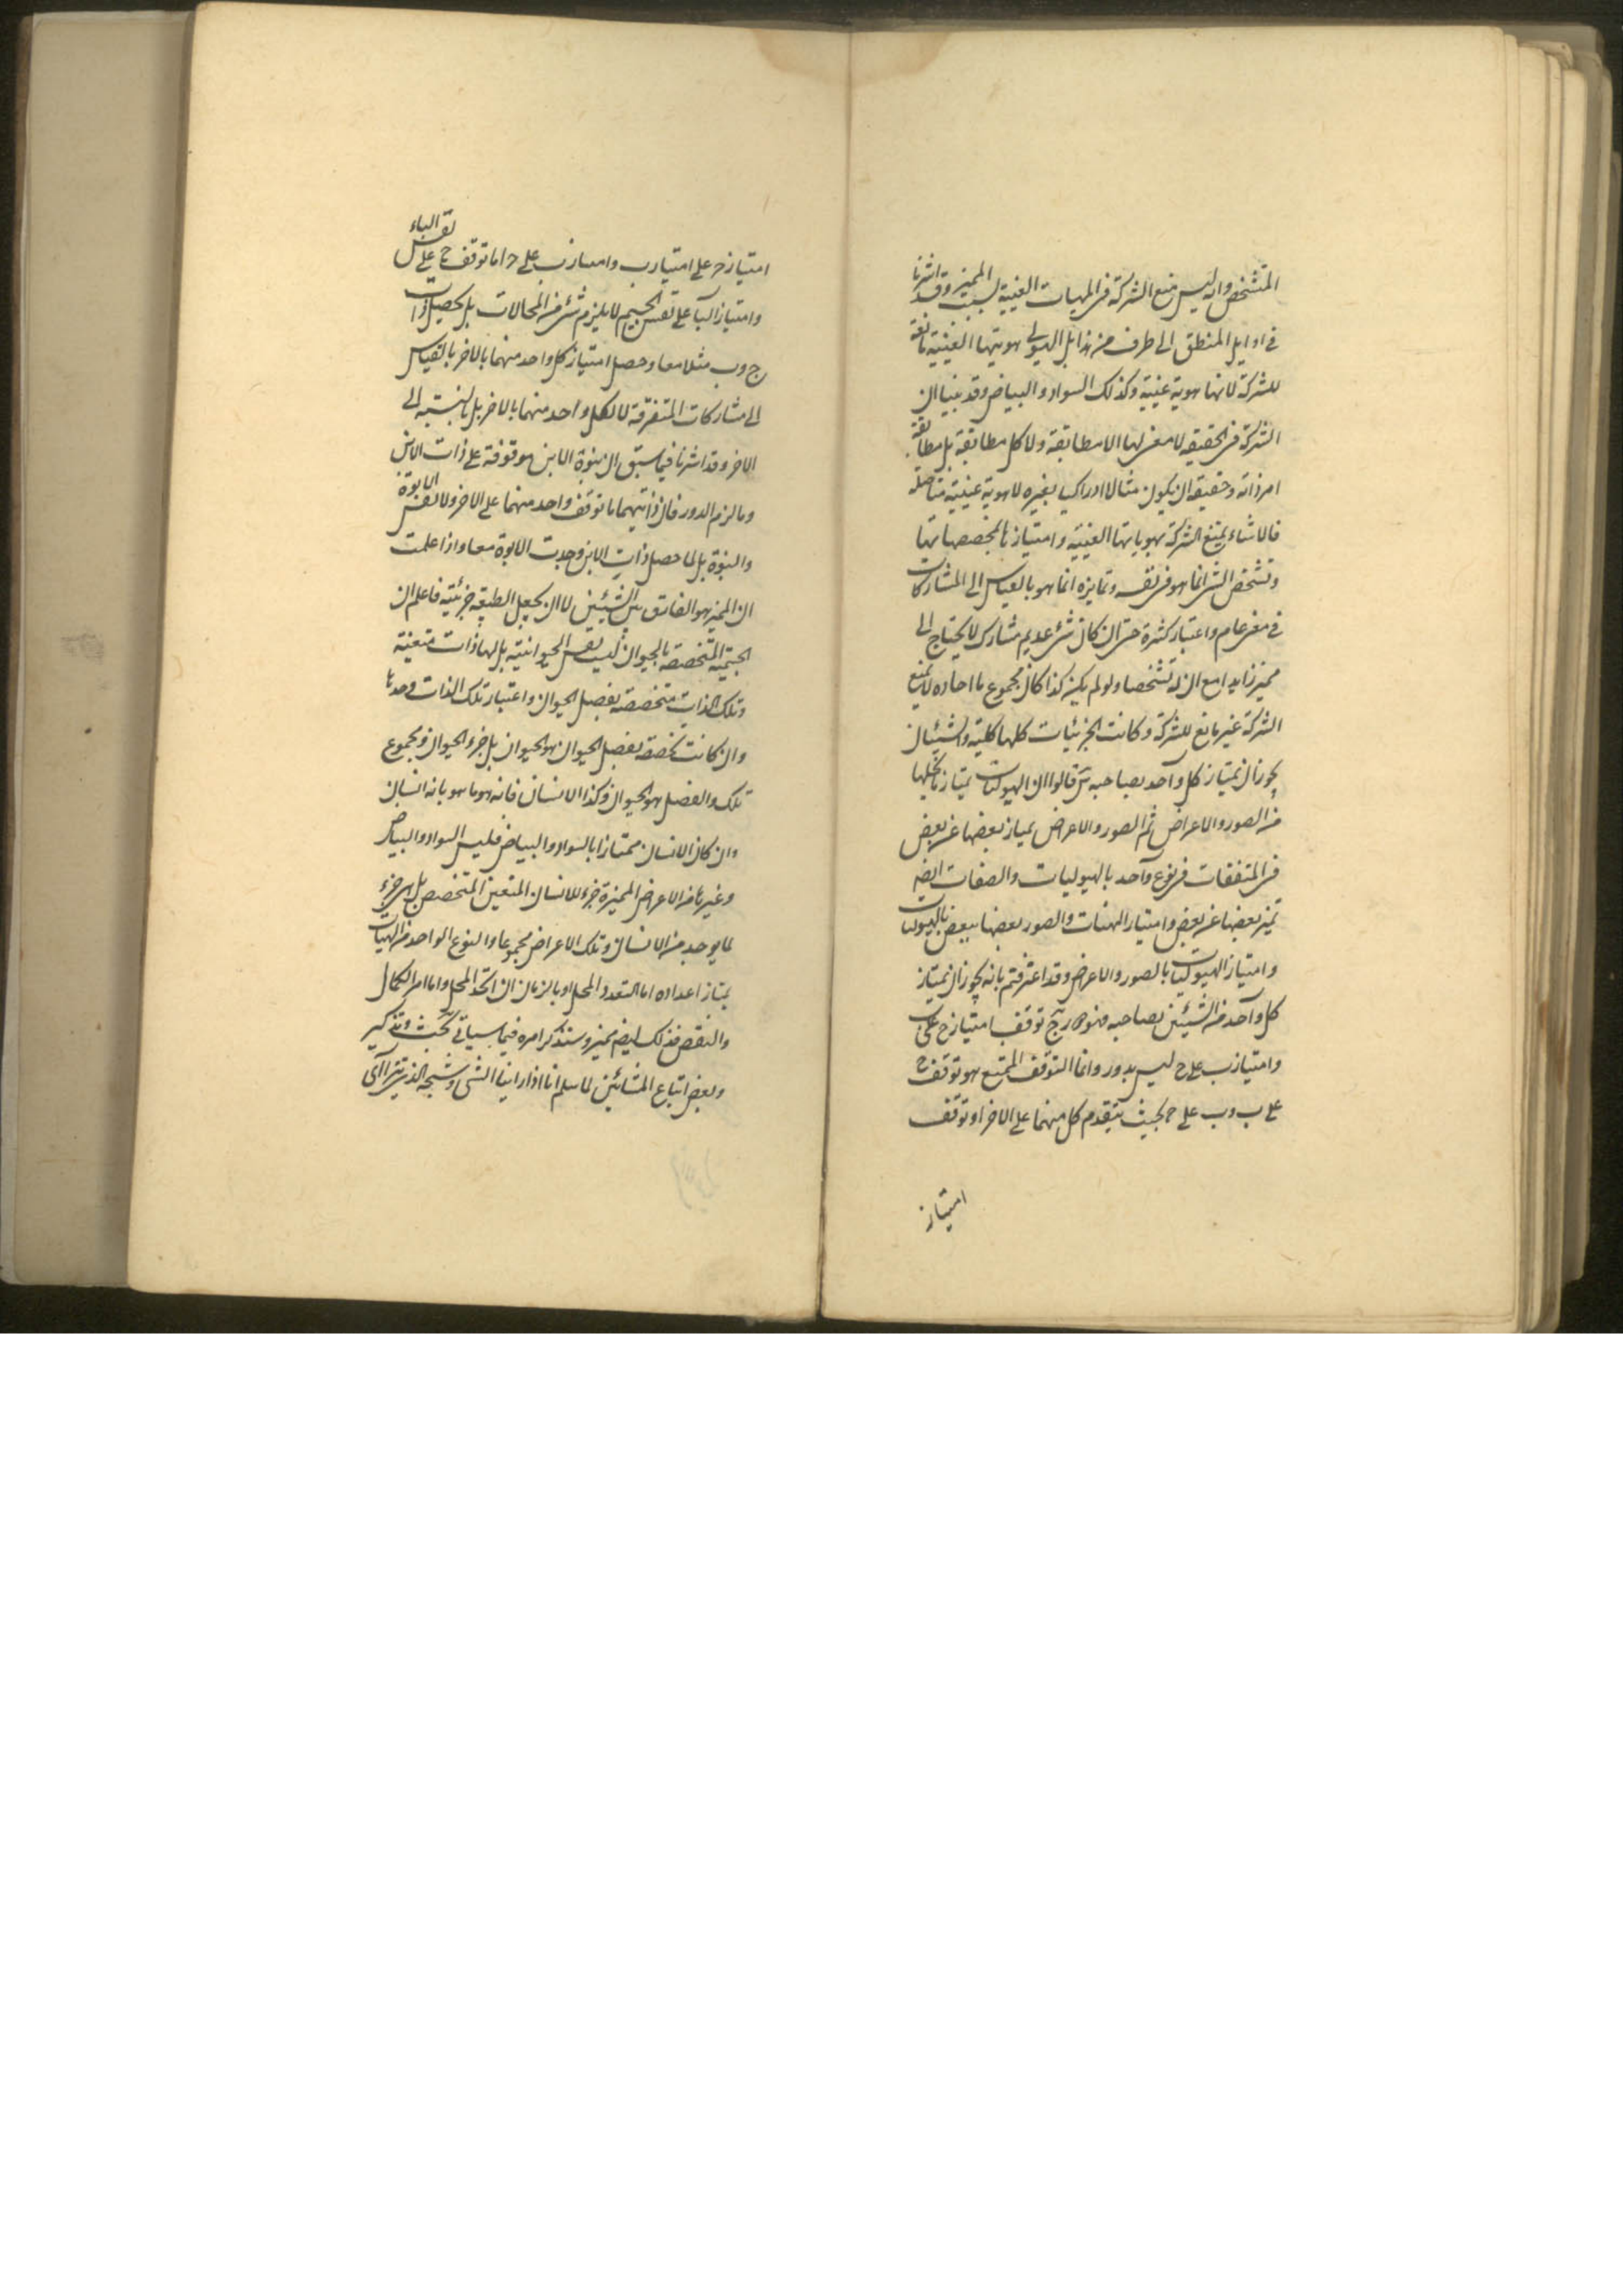 المتشخص وانه ليس منع الشركة فى المهيات العينية بسبب المميز وقد اشرنا
فى اوايل المنطق الى طرف من هذا بل الهيولى هويتها العينية مانعة
للشركة لانها هوية عينية وكذلك السواد والبياض وقد بينا ان
الشركة فى الحقيقه لا معنى لها الا مطابقة ولا كل مطابقة بل مطابقة
امر ذاته وحقيقه ان يكون مثالا ادراكيا لغيره لا هوية عينية متاصله
فالاشياء يمتنع الشركة بهوياتها العينيه وامتيازها بمخصصاتها
وتشخص الشئ انما هو فى نفسه وتمايزه انما هو بالقياس الى المشاركات
فى معنى عام واعتبار كثرة حتى ان كان شئ عديم مشارك لا يحتاج الى
مميز زايد مع ان له تشخصا ولو لم يكن كذا كان مجموع ما احاده لا يمنع
الشركة غير مانع للشركة وكانت الجزئيات كلها كلية والشيئان
يجوز ان يمتاز كل واحد بصاحبه قالوا ان الهيوليات يمتاز بما يحلها
من الصور والاعراض ثم الصور والاعراض يمياز بعضها عن بعض
فى المتفقات فى نوع واحد بالهيوليات والصفات ايضا
تميز بعضها عن بعض وامتياز الهيئات والصور بعضها ببعض بالهيوليات
وامتياز الهيوليات بالصور والاعراض وقد اعترفتم بانه يجوز ان يمتاز
كل واحد من الشيئين بصاحبه توقف امتياز ح على ب
وامتياز ب على ح ليس بدور وانما التوقف الممتنع هو توقف ح
على ب وب على ح بحيث يتقدم كل منهما على الاخر او توقف
امتياز
امتياز ح على امتياز ب وامتياز ب على ح اما توقف ح على نفس الباء
وامتياز البآ على نفس الجيم لا يلزم شئ من المحالات بل يحصل ذات
ج وب مثلا معا وحصل امتياز كل واحد منهما بالاخر بالقياس
الى مشاركات المتفرقة لا لكل واحد منهما بالاخر بل بالنسبة الى
الاخر وقد اشرنا فيما سبق ان بنوة الابن موقوفة على ذات الابن
وما لزم الدور فان ذاتيهما ما توقف واحد منهما على الاخر ولا نفس الابوة
والبنوة بل لما حصل ذات الابن وجدت الابوة معا واذا علمت
ان المميز هو الفارق بين الشيئين لا ان يجعل الطبيعه جزئية فاعلم ان
الجسميه المتخصصه بالحيوان ليست نفس الحيوانية بل لها ذات متعينة
وتلك الذات متخصصة بفصل الحيوان واعتبار تلك الذات وحدها
وان كانت مخصصه بفصل الحيوان هو الحيوان بل جزء الحيوان ومجموع
تلك والفصل هو الحيوان وكذا الانسان فانه هو ما هو بانه انسان
وان كان الانسان ممتازا بالسواد والبياض فليس السواد والبياض
وغيرها من الاعراض المميزة جزء للانسان المتعين المتخصص بل هى جزء
لما يوجد من الانسان وتلك الاعراض مجموعا والنوع الواحد من الهيات
يمتاز اعداده اما لتعدد المحل او بالزمان ان اتحد المحل واما امر الكمال
والنقص فذلك ايضا مميز وسنذكر امره فيما سياتى بحث وتذكير
وبعض اتباع المشائين لما سلم انا اذا راينا الشئ وشبحه الذى يترآاى